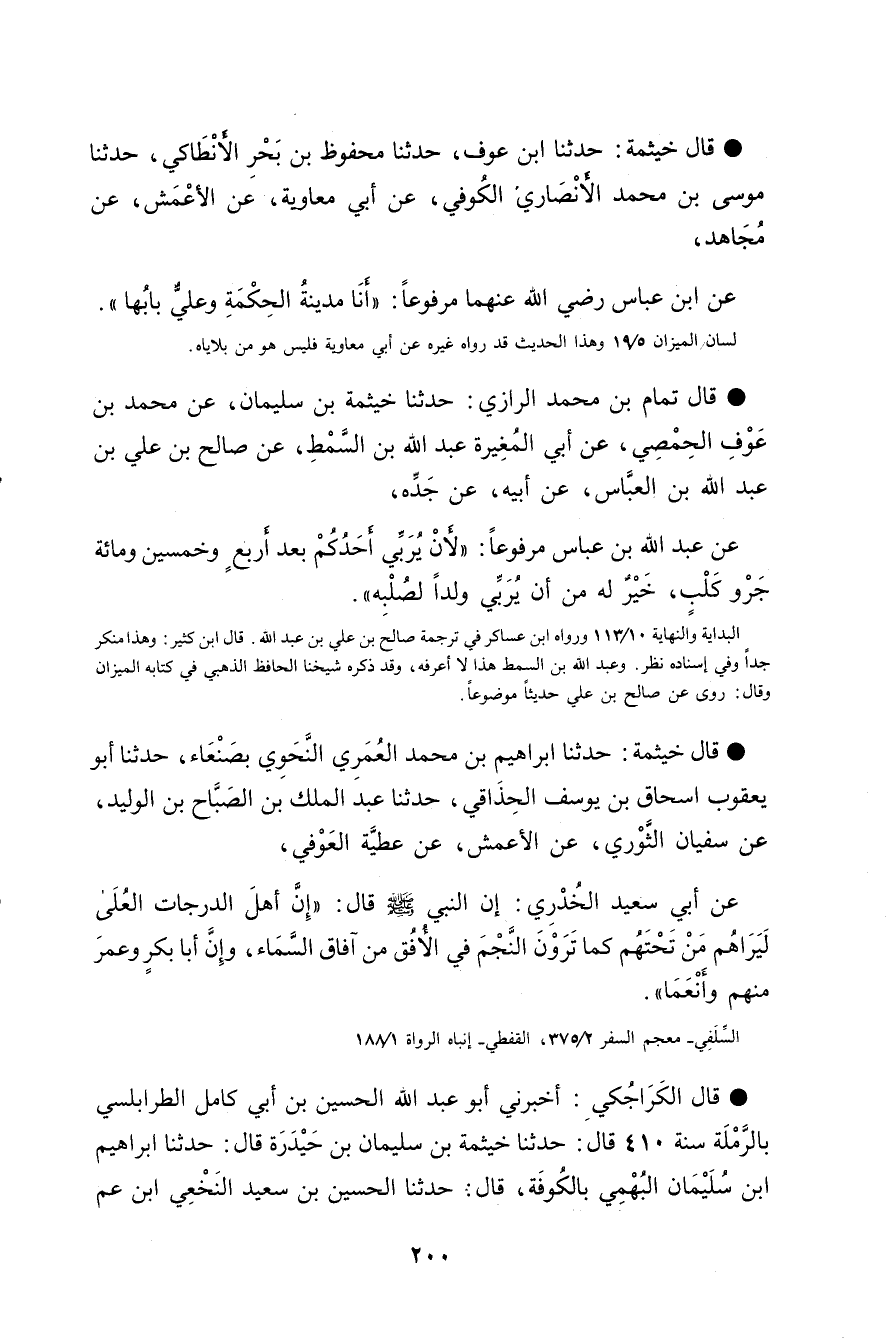 ● قال خيثمة: حدثنا ابن عوف، حدثنا محفوظ بن بَحْرِ الأَنْطَاكي، حدثنا
موسى بن محمد الأَنْصَاري الكُوفي، عن أبي معاوية، عن الأعْمَش، عن
مُجَاهد،
عن ابن عباس رضي الله عنهما مرفوعاً: «أَنَا مدينةُ الحِكْمَةِ وعليٌّ بابُها».
لسان الميزان ١٩/٥ وهذا الحديث قد رواه غيره عن أبي معاوية فليس هو من بلاياه.
● قال تمام بن محمد الرازي: حدثنا خيثمة بن سليمان، عن محمد بن
عَوْفِ الحِمْصِي، عن أبي المُغِيرة عبد الله بن السَّمْطِ، عن صالح بن علي بن
عبد الله بن العبَّاس، عن أبيه، عن جَدِّه،
عن عبد الله بن عباس مرفوعاً: «لَأَنْ يُرَبِّي أَحَدُكُمْ بعد أَربعٍ وخمسين ومائة
جَرْو كَلْبٍ، خَيْرٌ له من أن يُرَبِّي ولداً لصُلْبِه».
البداية والنهاية ١١٣/١٠ ورواه ابن عساكر في ترجمة صالح بن علي بن عبد الله. قال ابن كثير: وهذا منكر
جداً وفي إسناده نظر. وعبد الله بن السمط هذا لا أعرفه، وقد ذكره شيخنا الحافظ الذهبي في كتابه الميزان
وقال: روى عن صالح بن علي حديثاً موضوعاً.
● قال خيثمة: حدثنا ابراهيم بن محمد العُمَري النَّحَوِي بصَنْعَاء، حدثنا أبو
يعقوب اسحاق بن يوسف الحِذَاقي، حدثنا عبد الملك بن الصَبَّاح بن الوليد،
عن سفيان الثَّوْري، عن الأعمش، عن عطيَّة العَوْفي،
عن أبي سعيد الخُدْرِي: إن النبي ﷺ قال: «إِنَّ أهلَ الدرجات العُلَىٰ
لَيَرَاهُم مَنْ تَحْتَهُم كما تَرَوْنَ النَّجْمَ في الأُفُق من آفاق السَّمَاء، وإِنَّ أبا بكرٍ وعمرَ
منهم وأَنْعَمَا».
السِّلَفِي- معجم السفر ٣٧٥/٢، القفطي- إنباه الرواة ١٨٨/١
● قال الكَرَاجُكي: أخبرني أبو عبد الله الحسين بن أبي كامل الطرابلسي
بالرَّمْلَة سنة ٤١٠ قال: حدثنا خيثمة بن سليمان بن حَيْدَرَة قال: حدثنا ابراهيم
ابن سُلَيْمَان النُهْمِي بالكُوفَة، قال: حدثنا الحسين بن سعيد النَخْعِي ابن عم
٢٠٠